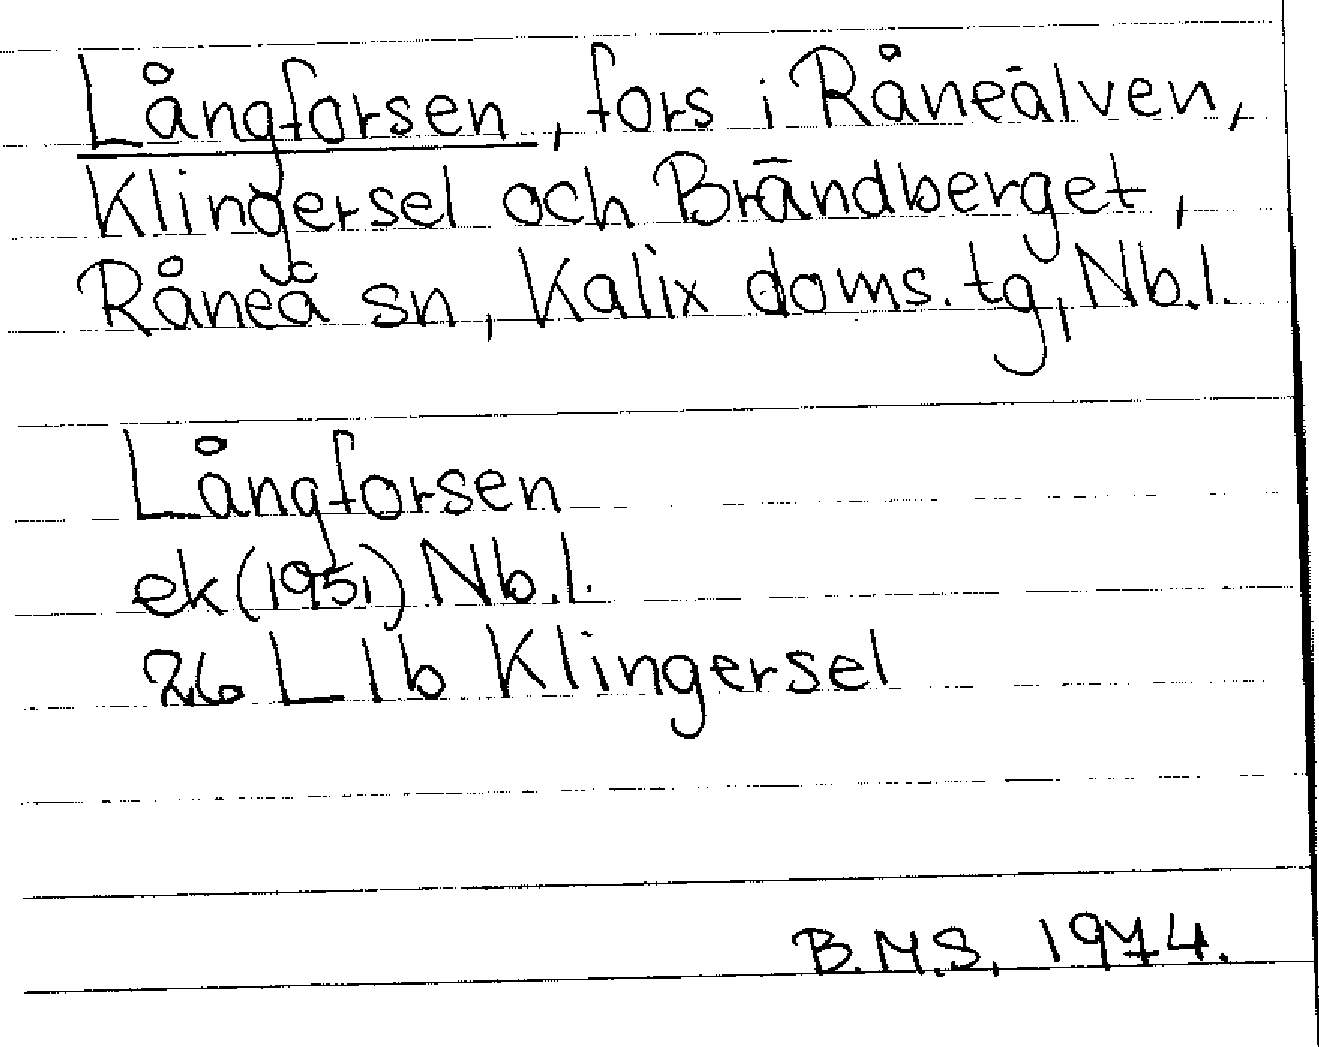 Långforsen, fors i Råneälven,
Klingersel och Brändberget,
Råneå sn, Kalix doms. tg, Nb.l.
Långforsen
ek (1951) Nb.l.
26 L 1b Klingersel
B.M.S, 1974.